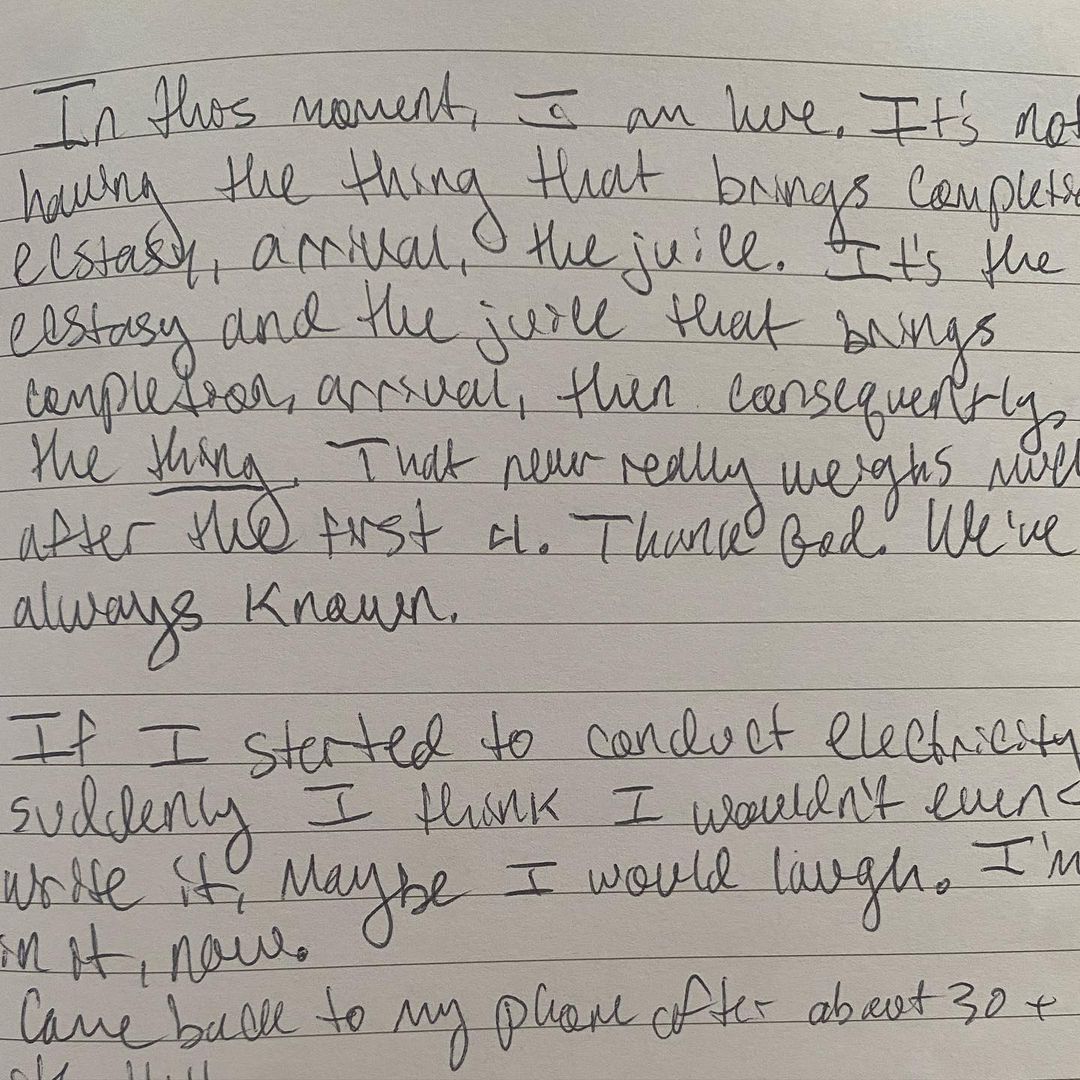 In this moment, I am here. It's not
having the thing that brings completio
ecstasy, arrival, the juice. It's the
ecstasy and the juice that brings
completion, arrival, then consequently,
the thing. That never really weighs
after the first cl. Thank God. We've
always known.
If I started to conduct electricity
suddenly I think I wouldn't even
write it, Maybe I would laugh. I'm
in it, now.
Came back to my phone after about 30 +